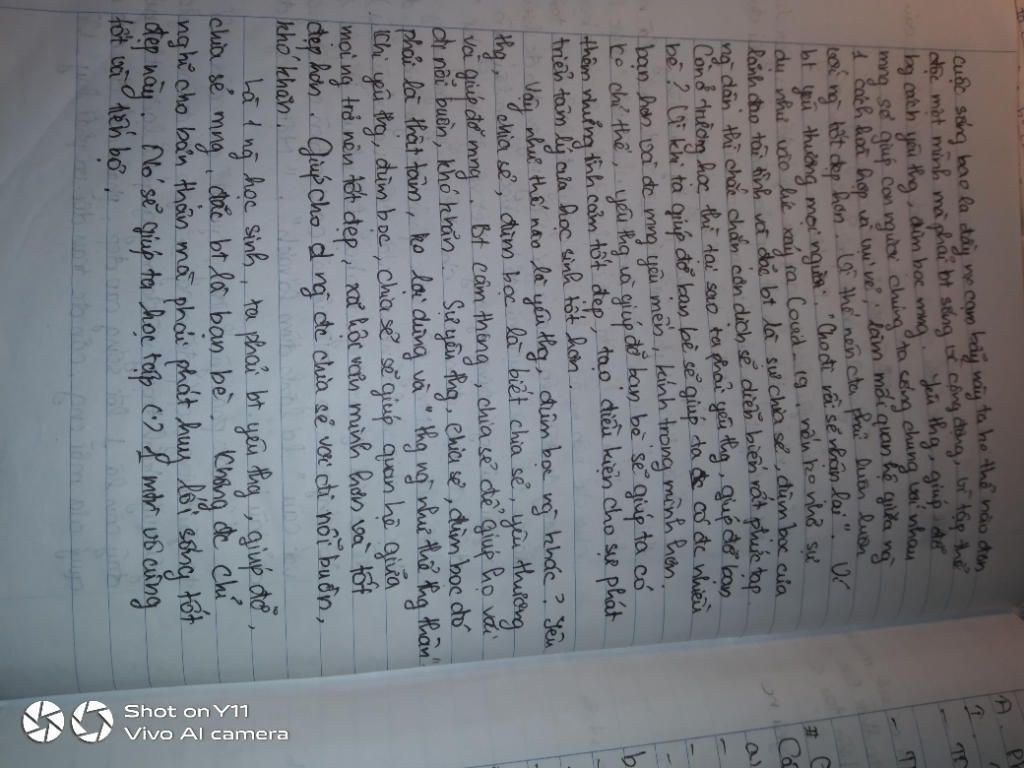 cuộc sống bao la đầy rẫy cạm bẫy này ta ko thể nào đơn
độc một mình mà phải bt sống có cộng đồng, vì tập thể
bg cách yêu thg, đùm bọc mng. Yêu thg, giúp đỡ
mng sẽ giúp con người chúng ta sống chung với nhau
1 cách hoà hợp và vui vẻ, làm mối quan hệ giữa ng
với ng tốt đẹp hơn. Là thế nên cta phải luôn luôn
bt yêu thương mọi người "Cho đi rồi sẽ nhận lại". Ví
dụ như vào lúc xảy ra Covid-19 nếu ko nhờ sự
lãnh đạo tài tình và đặc bt là sự chia sẻ, đùm bọc của
ng dân thì chắc chắn còn dịch sẽ diễn biến rất phức tạp.
Còn ở trường học thì tại sao ta phải yêu thg, giúp đỡ bạn
bè? Vì khi ta giúp đỡ bạn bè sẽ giúp ta có đc nhiều
bạn hơn và đc mng yêu mến, kính trọng mình hơn.
Ko chỉ thế, yêu thg và giúp đỡ bạn bè sẽ giúp ta có
thêm những tình cảm tốt đẹp, tạo điều kiện cho sự phát
triển tâm lý của học sinh tốt hơn.
Vậy như thế nào là yêu thg, đùm bọc ng khác? Yêu
thg, chia sẻ, đùm bọc là biết chia sẻ, yêu thương
và giúp đỡ mng. Bt cảm thông, chia sẻ để giúp họ vơi
đi nỗi buồn, khó khăn. Sự yêu thg, chia sẻ, đùm bọc đó
phải là thật tâm, ko lợi dụng và "thg ng như thể thg thân"
Khi yêu thg, đùm bọc, chia sẻ sẽ giúp quan hệ giữa
mọi ng trở nên tốt đẹp, xã hội văn minh hơn và tốt
đẹp hơn. Giúp cho ng đc chia sẻ vơi đi nỗi buồn,
khó khăn.
Là 1 ng học sinh, ta phải bt yêu thg, giúp đỡ,
chia sẻ mng, đặc bt là bạn bè. Không đc chỉ
nghĩ cho bản thân mà phải phát huy lối sống tốt
đẹp này. Nó sẽ giúp ta học tập vô cùng
tốt và tiến bộ.
Shot on Y11
Vivo AI camera